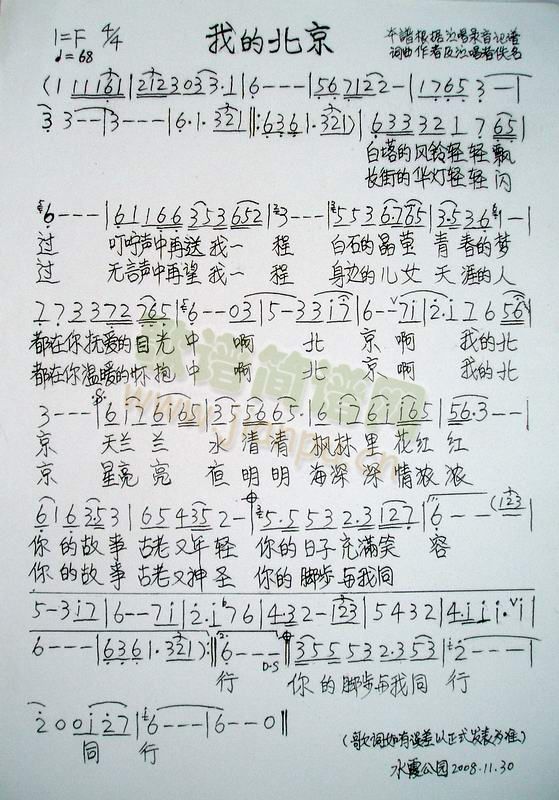 1=F 4/4
♩=68
我的北京
本谱根据演唱录音记谱
词曲作者及演唱者佚名
(1 11161|212303 3·1|6---|567122-|1765 3-|
3 3--|3---|6·1·321|:6361·321)|633321 7 65|
白塔的风铃轻轻飘
长街的华灯轻轻闪
6---|61166353652|3---|5536·765|3·536 1--|
过 叮咛声中再送我一程 白石的晶莹青春的梦
过 无言声中再望我一程 身边的儿女天涯的人
77337 2 765|6--03|5-33i7|6--7i|2·i7656|
都在你抚爱的目光中啊 北京啊 我的北
都在你温暖的怀抱中啊 北京啊 我的北
3---|6i76i65|355665·|6i76ii65|56·3--|
京 天兰兰 水清清 枫林里花红红
京 星亮亮 夜明明 海深深情浓浓
6163·53|165435 2-|5·5532·3127|6--(123
你的故事古老又年轻 你的日子充满笑容
你的故事古老又神圣 你的脚步与我同
5-3i7|6--7i|2·i76|4·32-123|5432|4·iii·i|
6---|6361·321):|6---|355532·353|2---|
D.S
行 你的脚步与我同行
2 00i27|6---|6--0‖
同 行
(歌词如有误差以正式发表为准)
水霞公园2008.11.30